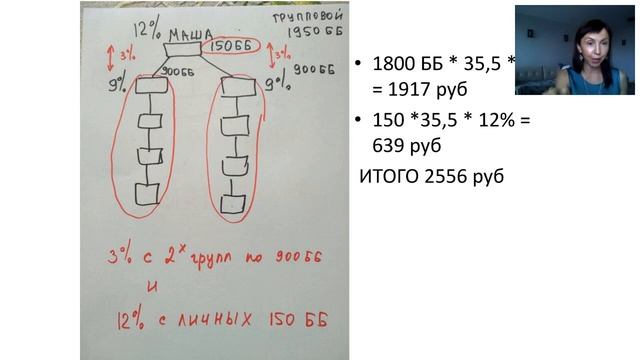 12%
МАША
150 ББ
ГРУППОВОЙ
1950 ББ
3%
3%
9%
900 ББ
9%
900 ББ
3% с 2х групп по 900 ББ
и
12% с личных 150 ББ
• 1800 ББ * 35,5 *
= 1917 руб
• 150 *35,5 * 12% =
639 руб
ИТОГО 2556 руб